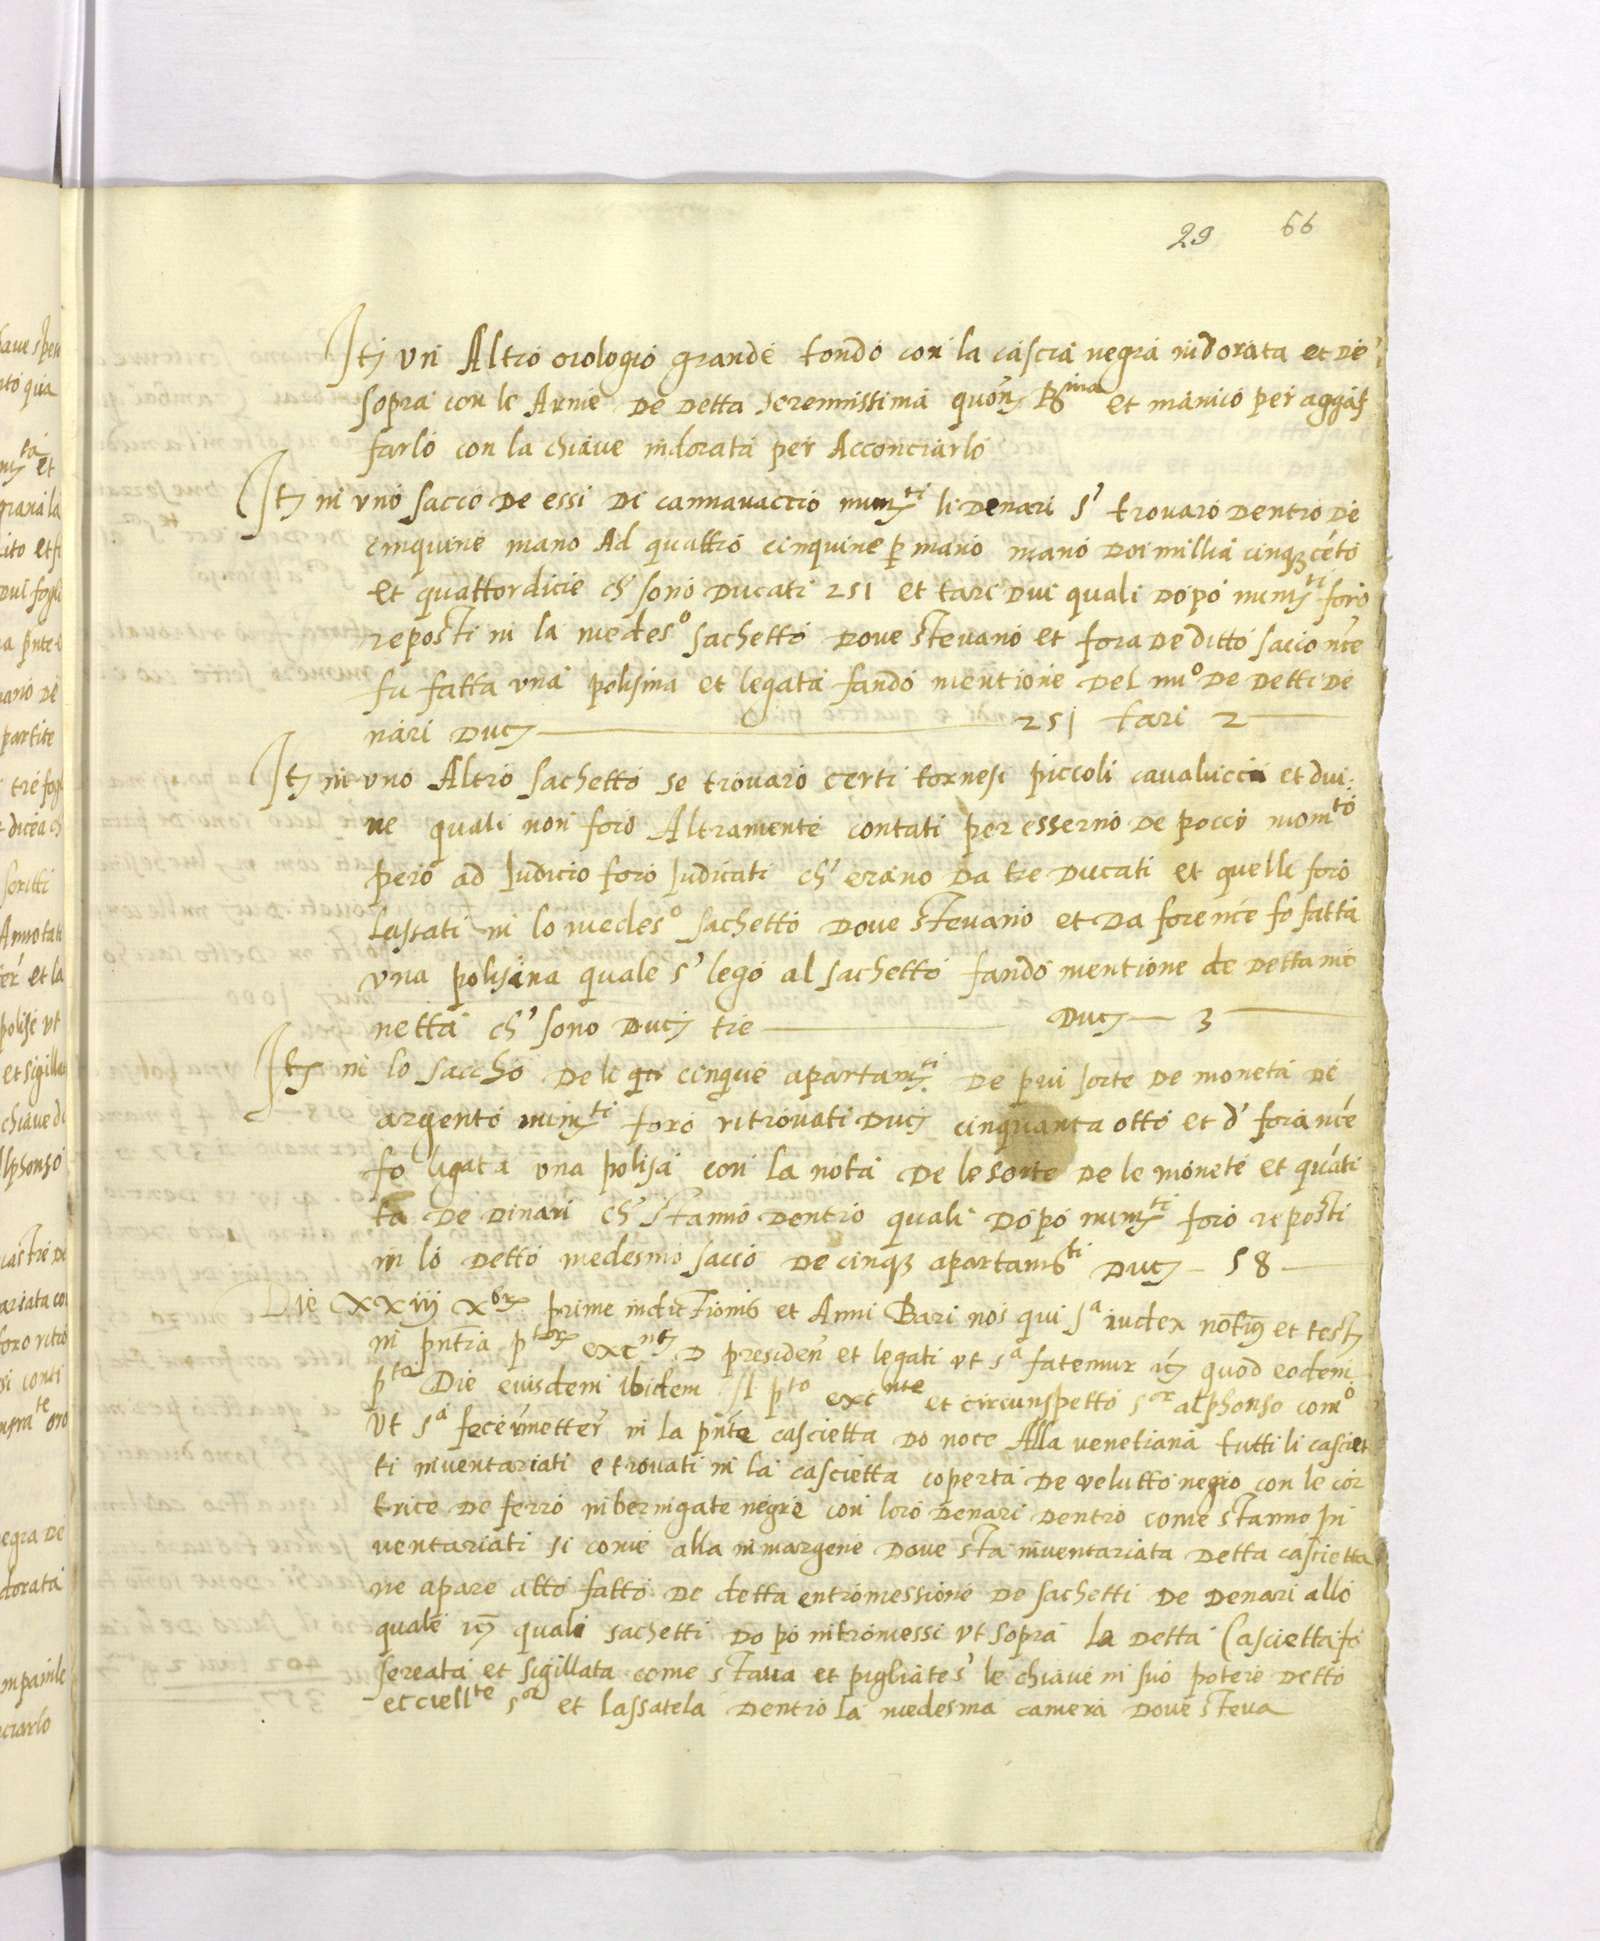 29 66
Itȝ un Altro orologio grande tondo con la cascia negra indorata et de
sopra con le Arme de detta serenissima quonȝ Rᵐᵃ et manico per aggaf
farlo con la chiave indorata per Acconciarlo
Itȝ in uno sacco de essi di cannavaccio numȝᵗⁱ li denari s' trovaro dentro de
cinquine mano Ad quattro cinquine p mano mano doi millia cinqȝ ceto
et quattordicie ch' sono ducati 251 et tari dui quali dopo numȝᵗⁱ foro
reposti in la medesᵒ sachetto dove stevano et fora de ditto sacco nce
fu fatta una polisina et legata fando mentione del nuᵒ de detti de
nari ducȝ 251 tari 2
Itȝ in uno Altro sachetto se trovaro certi tornesi piccoli cavalucci et dui:
ne quali non foro Altramente contati per esserno de pocco momᵗᵒ
pero ad Iudicio foro Iudicati ch' erano da tre ducati et quelli foro
lassati in lo medesᵒ sachetto dove stevano et da fore nce fo fatta
una polisina quale s' lego al sachetto fando mentione de detta mo
netta ch' sono ducȝ tre ducȝ 3
Itȝ in lo saccho de li cinque apartamȝᵗⁱ de piu sorte de moneta de
argento numȝᵗⁱ foro ritrovati ducȝ cinquanta otto et d' fora nce
fo ligata una polisa con la nota de le sorte de le monete et quati
ta de dinari ch' stanno dentro quali dopo numȝᵗⁱ foro reposti
in lo detto medesmo sacco de cinqȝ apartamᵗⁱ ducȝ 58
Die XXiij Xbrȝ prime indictionis et Anni Bari nos qui sᵃ iudex notȝ et testȝ
in pntia pᵗᵒʳȝ excⁿᵗȝ D presiden et legati ut sᵃ fatemur quod eodem
pᵗᵒ Die eiusdem ibidem pᵗᵒ excⁿᵗᵉ et circunspetto sᵒʳ alphonso comᵒ
ut sᵃ fece metter in la pnte cascietta do noce Alla venetiana tutti li casciet
ti inventariati e trovati in la cascietta coperta de velutto negro con le cor
trice de ferro inbernigate negre con loro denari dentro come stanno In
ventariati si come alla in margene dove sta inventariata detta cascietta
ne apare atto fatto de detta entromessione de sachetti de denari allo
quale quali sachetti do po intromessi ut sopra la detta Cascietta fo
sereata et sigillata come stava et pigliates' le chiave in suo potere detto
ecciellᵗᵉ sᵒʳ et lassatela dentro la medesma camera dove steva